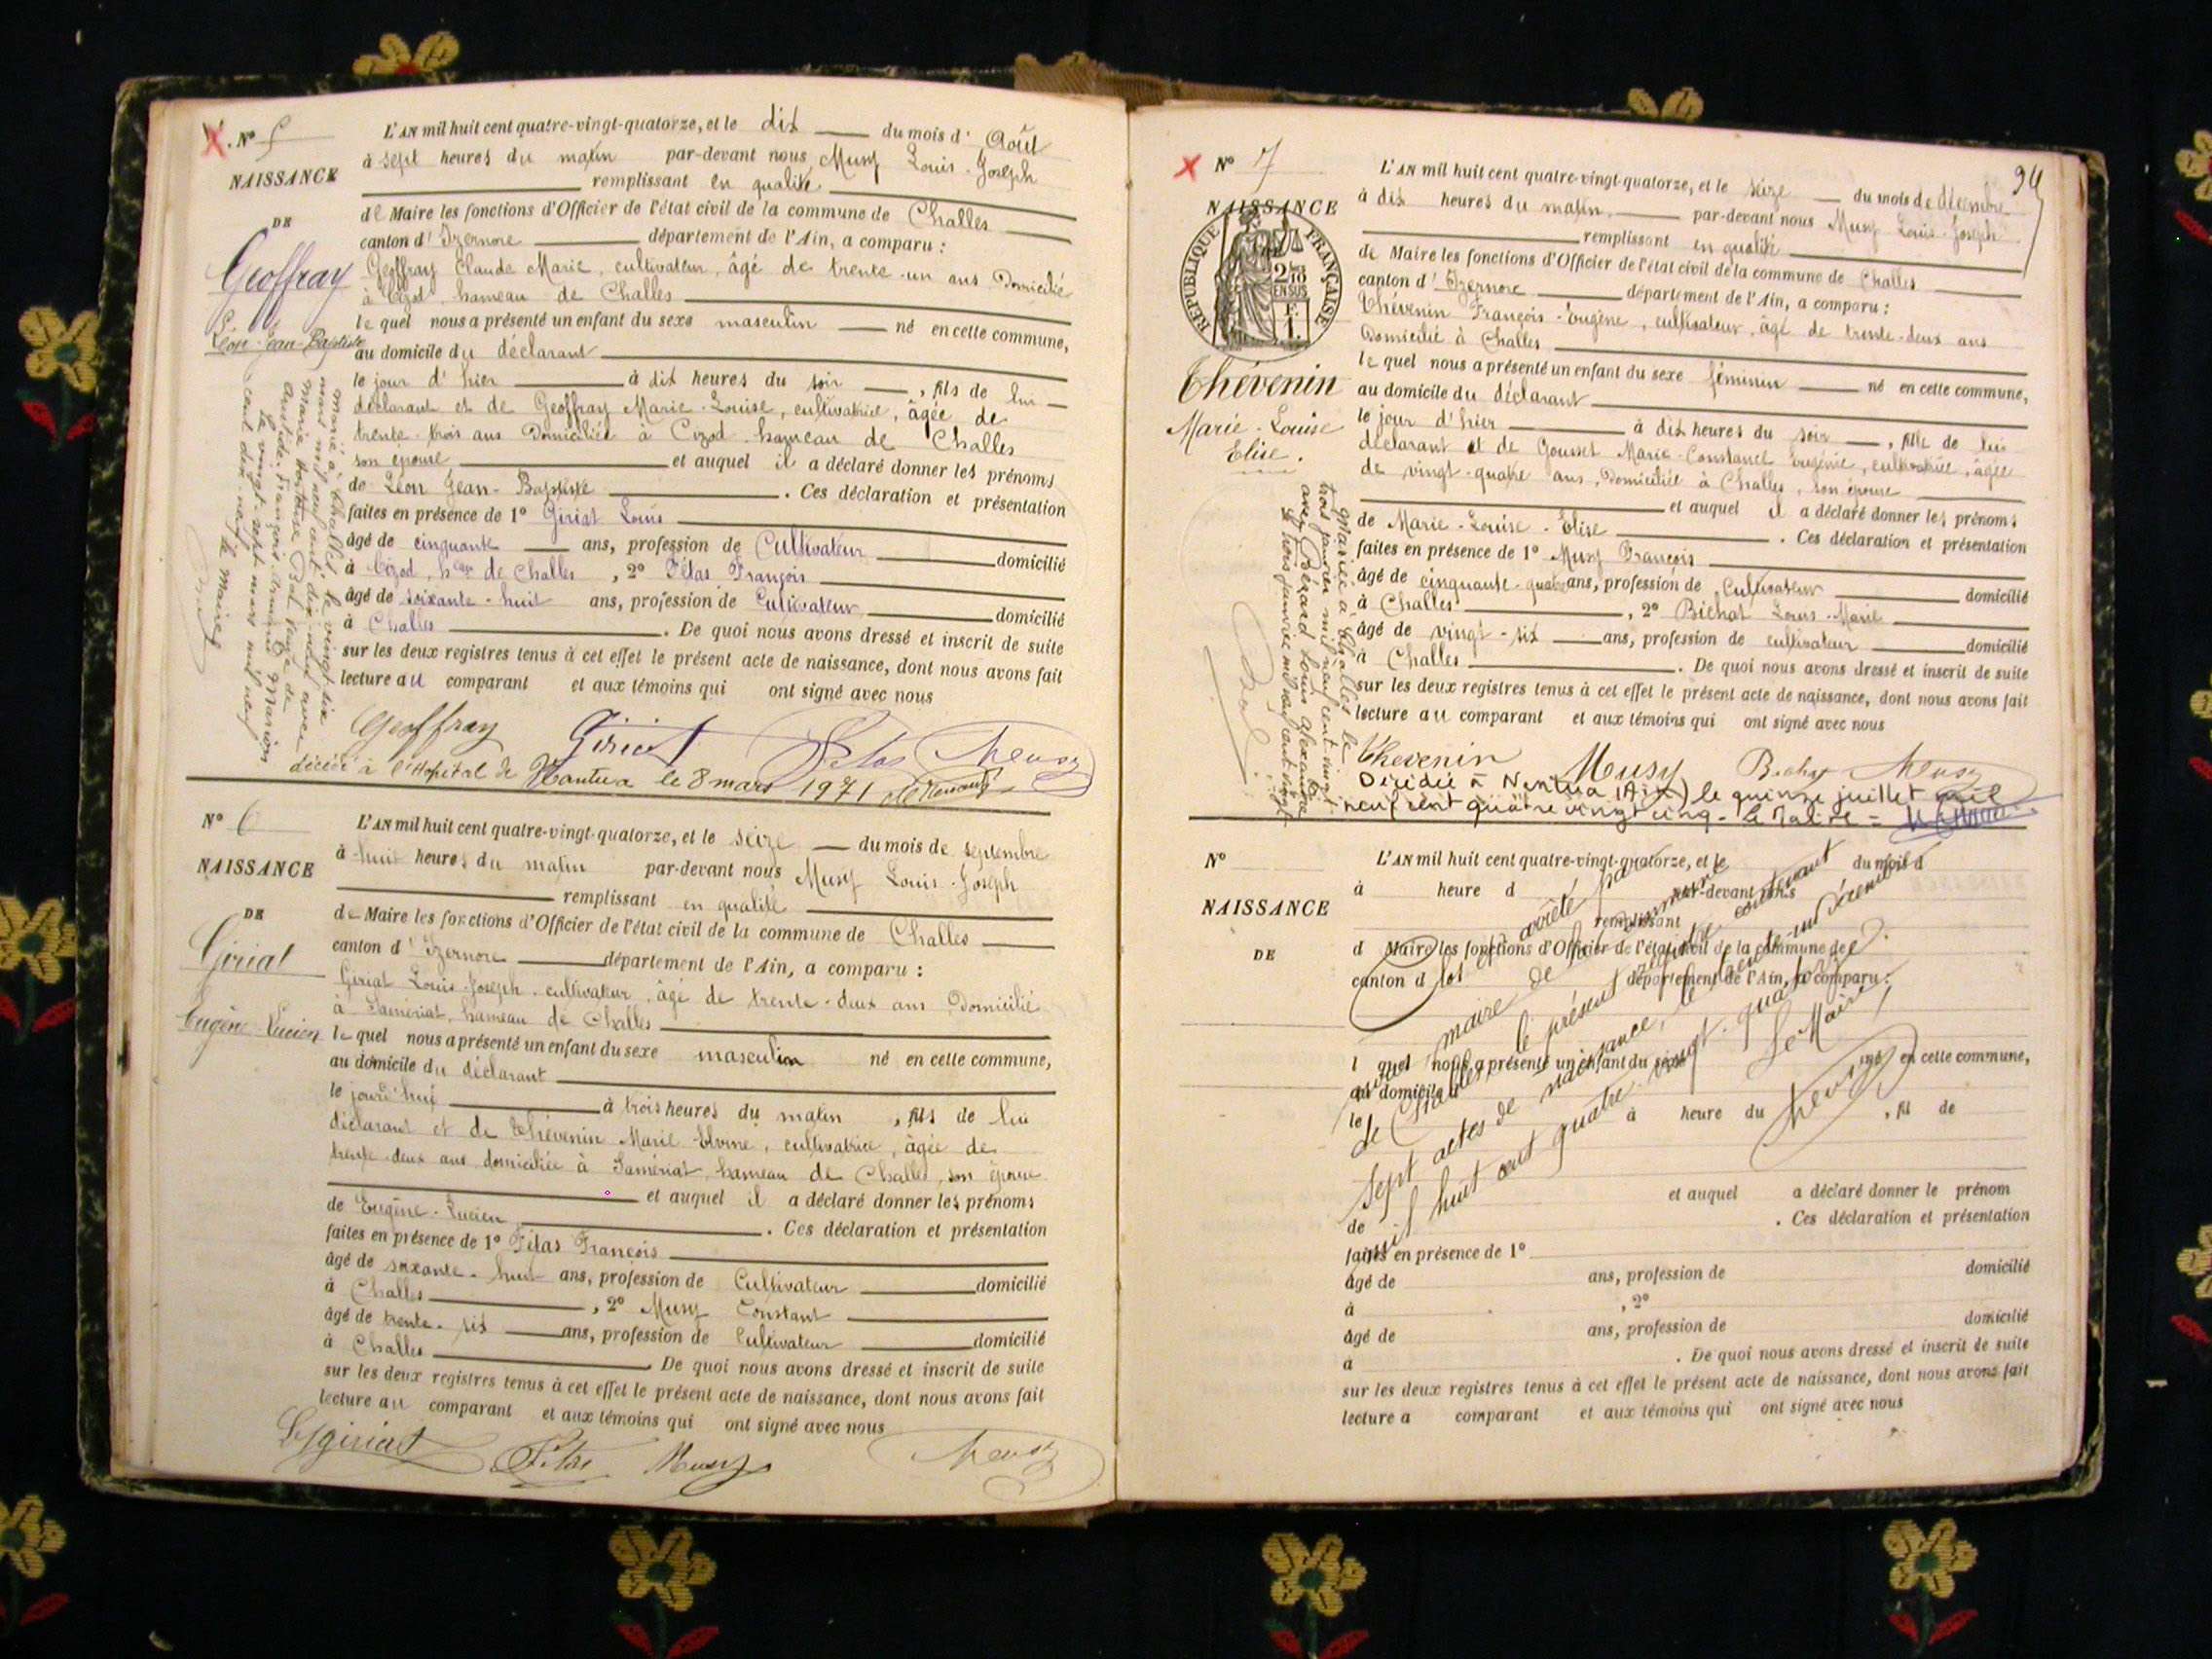 N° 5
NAISSANCE
DE
Geoffray
Léon-Jean-Baptiste
L'AN mil huit cent quatre-vingt-quatorze, et le dix du mois d' Août
à sept heures du matin par-devant nous Musy Louis-Joseph
remplissant en qualité
de Maire les fonctions d'Officier de l'état civil de la commune de Challes
canton d' Izernore département de l'Ain, a comparu :
Geoffray Claude Marie, cultivateur, âgé de trente-un ans Domicilié
à Cizod hameau de Challes
le quel nous a présenté un enfant du sexe masculin né en cette commune,
au domicile du déclarant
le jour d' hier à dix heures du soir, fils de lui
déclarant et de Geoffray Marie-Louise, cultivatrice, âgée de
trente-trois ans Domiciliée à Cizod hameau de Challes
son épouse et auquel il a déclaré donner les prénoms
de Léon Jean-Baptiste. Ces déclaration et présentation
faites en présence de 1° Giriat Louis
âgé de cinquante ans, profession de Cultivateur domicilié
à Cizod, hau de Challes, 2° Fétas François
âgé de soixante-huit ans, profession de Cultivateur domicilié
à Challes. De quoi nous avons dressé et inscrit de suite
sur les deux registres tenus à cet effet le présent acte de naissance, dont nous avons fait
lecture au comparant et aux témoins qui ont signé avec nous
Marié à Challes le vingt-six
mars mil neuf cent dix-neuf avec
Marie Hortense Bot veuve de
Aristide François Manion
le vingt-sept mars mil neuf
cent dix-neuf
le Maire
Geoffray Giriat Fétas Musy
décédé à l'Hôpital de Nantua le 8 mars 1971
N° 6
NAISSANCE
DE
Giriat
Eugène-Lucien
L'AN mil huit cent quatre-vingt-quatorze, et le seize du mois de septembre
à huit heures du matin par-devant nous Musy Louis-Joseph
remplissant en qualité
de Maire les fonctions d'Officier de l'état civil de la commune de Challes
canton d' Izernore département de l'Ain, a comparu :
Giriat Louis-Joseph, cultivateur, âgé de trente-deux ans Domicilié
à Samériat, hameau de Challes
le quel nous a présenté un enfant du sexe masculin né en cette commune,
au domicile du déclarant
le jourd'hui à trois heures du matin, fils de lui
déclarant et de Thévenin Marie, cultivatrice, âgée de
trente-deux ans domiciliée à Samériat, hameau de Challes, son épouse
et auquel il a déclaré donner les prénoms
de Eugène-Lucien. Ces déclaration et présentation
faites en présence de 1° Fétas François
âgé de soixante-huit ans, profession de Cultivateur domicilié
à Challes, 2° Musy Constant
âgé de trente-six ans, profession de Cultivateur domicilié
à Challes. De quoi nous avons dressé et inscrit de suite
sur les deux registres tenus à cet effet le présent acte de naissance, dont nous avons fait
lecture au comparant et aux témoins qui ont signé avec nous
Giriat Fétas Musy Musy
94
N° 7
NAISSANCE
RÉPUBLIQUE FRANÇAISE
2/10
EN SUS
F.
1.
Thévenin
Marie-Louise
Elise.
L'AN mil huit cent quatre-vingt-quatorze, et le seize du mois de décembre
à dix heures du matin par-devant nous Musy Louis-Joseph
remplissant en qualité
de Maire les fonctions d'Officier de l'état civil de la commune de Challes
canton d' Izernore département de l'Ain, a comparu :
Thévenin François-Eugène, cultivateur, âgé de trente-deux ans
Domicilié à Challes
le quel nous a présenté un enfant du sexe féminin né en cette commune,
au domicile du déclarant
le jour d'hier à dix heures du soir, fille de lui
déclarant et de Gousset Marie-Constance Eugénie, cultivatrice, âgée
de vingt-quatre ans, Domiciliée à Challes, son épouse
et auquel il a déclaré donner les prénoms
de Marie-Louise-Elise. Ces déclaration et présentation
faites en présence de 1° Musy François
âgé de cinquante-quatre ans, profession de Cultivateur domicilié
à Challes, 2° Bichat Louis-Marie
âgé de vingt-six ans, profession de cultivateur domicilié
à Challes. De quoi nous avons dressé et inscrit de suite
sur les deux registres tenus à cet effet le présent acte de naissance, dont nous avons fait
lecture au comparant et aux témoins qui ont signé avec nous
Mariée à Challes le
trois janvier mil neuf cent vingt
avec Bérard Louis Alexandre
le trois janvier mil neuf cent vingt
Thevenin Musy Bichat Musy
Décédée à Nantua (Ain) le quinze juillet mil
neuf cent quatre vingt cinq - Le Maire =
N°
NAISSANCE
DE
L'AN mil huit cent quatre-vingt-quatorze, et le du mois d
à heure d par-devant nous
remplissant
d Maire les fonctions d'Officier de l'état civil de la commune de
canton d département de l'Ain, a comparu :
l quel nous a présenté un enfant du sexe né en cette commune,
au domicile d
le à heure du , fil de
et auquel a déclaré donner le prénom
de . Ces déclaration et présentation
faites en présence de 1°
âgé de ans, profession de domicilié
à , 2°
âgé de ans, profession de domicilié
à . De quoi nous avons dressé et inscrit de suite
sur les deux registres tenus à cet effet le présent acte de naissance, dont nous avons fait
lecture a comparant et aux témoins qui ont signé avec nous
Clos et arrêté par
maire de la commune
de Challes, le présent registre contenant
sept actes de naissance, le trente-un Décembre
mil huit cent quatre-vingt-quatorze.
Le Maire
Musy